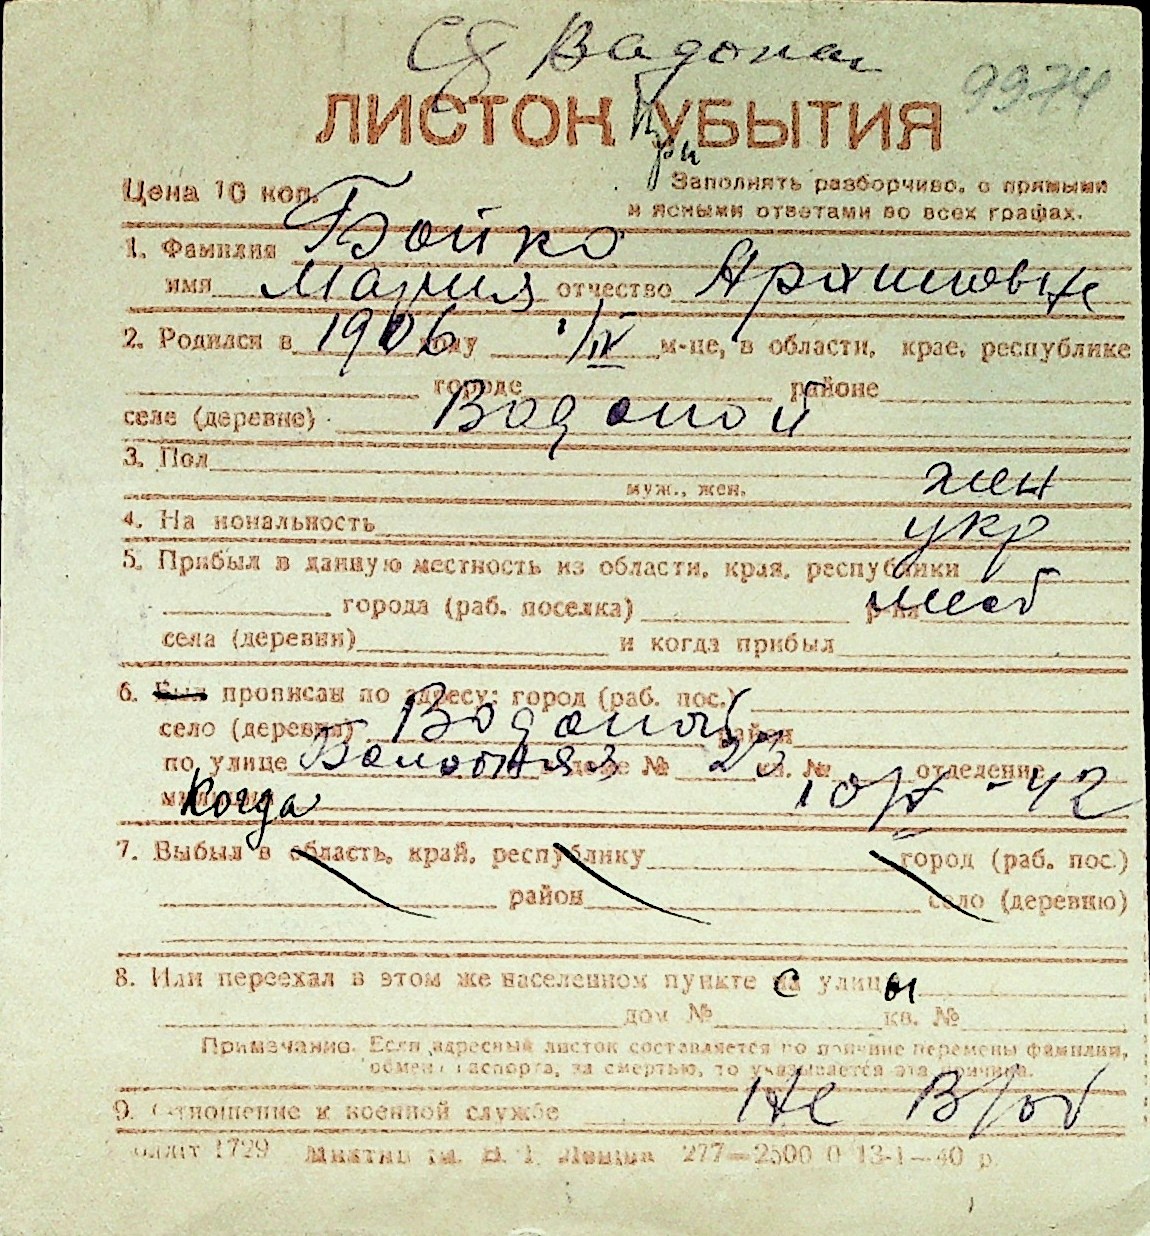 9974
ЛИСТОК УБЫТИЯ
При
Цена 10 коп.
Заполнять разборчиво, с прямыми
и ясными ответами во всех графах.
1. Фамилия Бойко
имя Мария отчество
2. Родился в 1906 году 1/IV м-це, в области, крае, республике
городе районе
селе (деревне) Водопой
3. Пол жен
муж., жен.
4. На иональность укр
5. Прибыл в данную местность из области, края, республики
города (раб. поселка) р-на
села (деревни) и когда прибыл
6. Был прописан по адресу: город (раб. пос.)
село (деревня) Водопой район
по улице дом № 23 кв. № отделение
Когда 10/X -42
7. Выбыл в область, край, республику город (раб. пос.)
район село (деревню)
8. Или переехал в этом же населенном пункте с улицы
дом № кв. №
Примечание. Если адресный листок составляется по причине перемены фамилии,
обмена паспорта, за смертью, то указывается эта причина.
9. Отношение к военной службе Не В/об
1729 277—2500 0 13-1—40 р.